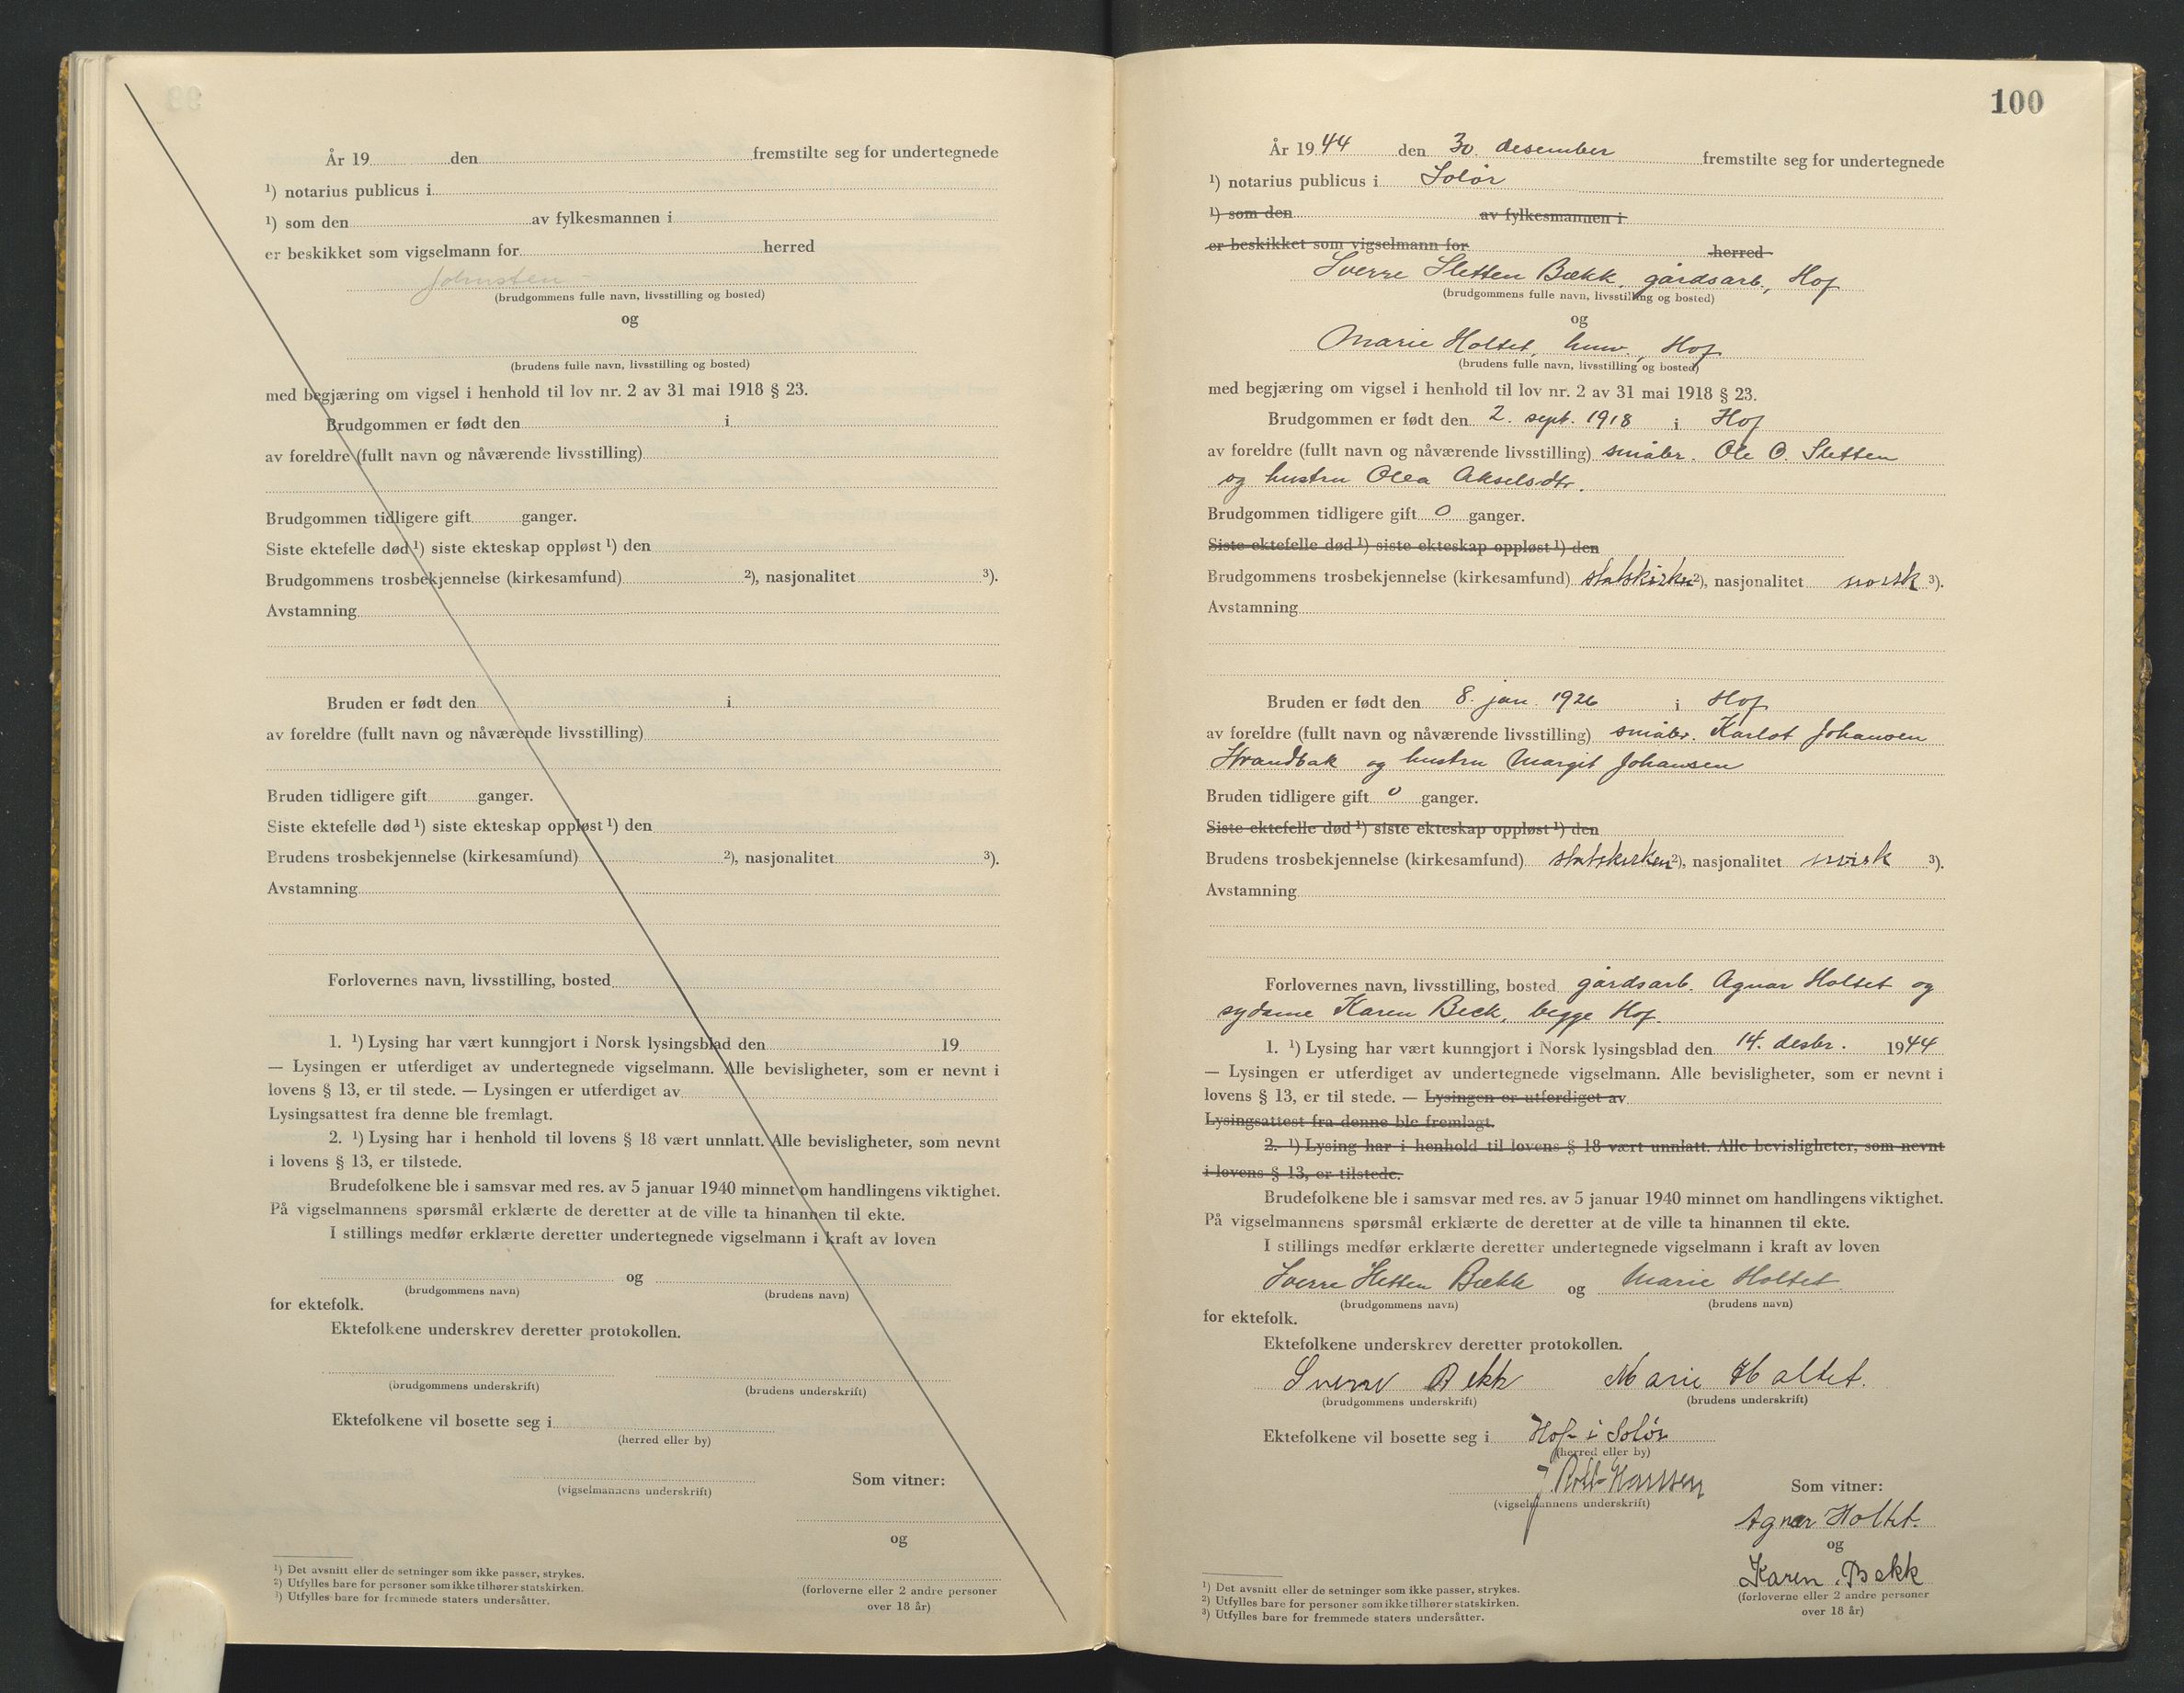 År 19 den fremstilte seg for undertegnede
¹) notarius publicus i
¹) som den av fylkesmannen i
er beskikket som vigselmann for herred
Johnsten
(brudgommens fulle navn, livsstilling og bosted)
og
(brudens fulle navn, livsstilling og bosted)
med begjæring om vigsel i henhold til lov nr. 2 av 31 mai 1918 § 23.
Brudgommen er født den i
av foreldre (fullt navn og nåværende livsstilling)
Brudgommen tidligere gift ganger.
Siste ektefelle død ¹) siste ekteskap oppløst ¹) den
Brudgommens trosbekjennelse (kirkesamfund) ²), nasjonalitet ³).
Avstamning
Bruden er født den i
av foreldre (fullt navn og nåværende livsstilling)
Bruden tidligere gift ganger.
Siste ektefelle død ¹) siste ekteskap oppløst ¹) den
Brudens trosbekjennelse (kirkesamfund) ²), nasjonalitet ³).
Avstamning
Forlovernes navn, livsstilling, bosted
1. ¹) Lysing har vært kunngjort i Norsk lysingsblad den 19
— Lysingen er utferdiget av undertegnede vigselmann. Alle bevisligheter, som er nevnt i
lovens § 13, er til stede. — Lysingen er utferdiget av
Lysingsattest fra denne ble fremlagt.
2. ¹) Lysing har i henhold til lovens § 18 vært unnlatt. Alle bevisligheter, som nevnt
i lovens § 13, er tilstede.
Brudefolkene ble i samsvar med res. av 5 januar 1940 minnet om handlingens viktighet.
På vigselmannens spørsmål erklærte de deretter at de ville ta hinannen til ekte.
I stillings medfør erklærte deretter undertegnede vigselmann i kraft av loven
og
(brudgommens navn) (brudens navn)
for ektefolk.
Ektefolkene underskrev deretter protokollen.
(brudgommens underskrift) (brudens underskrift)
Ektefolkene vil bosette seg i
(herred eller by)
Som vitner:
(vigselmannens underskrift)
og
(forloverne eller 2 andre personer
over 18 år)
¹) Det avsnitt eller de setninger som ikke passer, strykes.
²) Utfylles bare for personer som ikke tilhører statskirken.
³) Utfylles bare for fremmede staters undersåtter.
100
År 1944 den 30. desember fremstilte seg for undertegnede
¹) notarius publicus i Solør
¹) som den av fylkesmannen i
er beskikket som vigselmann for herred
Sverre Sletten Bækk, gårdsarb., Hof
(brudgommens fulle navn, livsstilling og bosted)
og
Marie Holtet, husv., Hof
(brudens fulle navn, livsstilling og bosted)
med begjæring om vigsel i henhold til lov nr. 2 av 31 mai 1918 § 23.
Brudgommen er født den 2. sept. 1918 i Hof
av foreldre (fullt navn og nåværende livsstilling) småbr. Ole O. Sletten
og hustru Olea Akselsdtr.
Brudgommen tidligere gift 0 ganger.
Siste ektefelle død ¹) siste ekteskap oppløst ¹) den
Brudgommens trosbekjennelse (kirkesamfund) statskirken ²), nasjonalitet norsk ³).
Avstamning
Bruden er født den 8. jan. 1926 i Hof
av foreldre (fullt navn og nåværende livsstilling) småbr. Karlot Johansen
Strandbak og hustru Margit Johansen
Bruden tidligere gift 0 ganger.
Siste ektefelle død ¹) siste ekteskap oppløst ¹) den
Brudens trosbekjennelse (kirkesamfund) statskirken ²), nasjonalitet norsk ³).
Avstamning
Forlovernes navn, livsstilling, bosted gårdsarb. Agnar Holtet og
sydame Karen Beck, begge Hof.
1. ¹) Lysing har vært kunngjort i Norsk lysingsblad den 14. desbr. 1944
— Lysingen er utferdiget av undertegnede vigselmann. Alle bevisligheter, som er nevnt i
lovens § 13, er til stede. — Lysingen er utferdiget av
Lysingsattest fra denne ble fremlagt.
2. ¹) Lysing har i henhold til lovens § 18 vært unnlatt. Alle bevisligheter, som nevnt
i lovens § 13, er tilstede.
Brudefolkene ble i samsvar med res. av 5 januar 1940 minnet om handlingens viktighet.
På vigselmannens spørsmål erklærte de deretter at de ville ta hinannen til ekte.
I stillings medfør erklærte deretter undertegnede vigselmann i kraft av loven
Sverre Sletten Bækk og Marie Holtet
(brudgommens navn) (brudens navn)
for ektefolk.
Ektefolkene underskrev deretter protokollen.
Sverre Bekk Marie Holtet.
(brudgommens underskrift) (brudens underskrift)
Ektefolkene vil bosette seg i Hof i Solør
(herred eller by)
Som vitner:
(vigselmannens underskrift)
Agnar Holtet.
og
Karen Bekk
(forloverne eller 2 andre personer
over 18 år)
¹) Det avsnitt eller de setninger som ikke passer, strykes.
²) Utfylles bare for personer som ikke tilhører statskirken.
³) Utfylles bare for fremmede staters undersåtter.